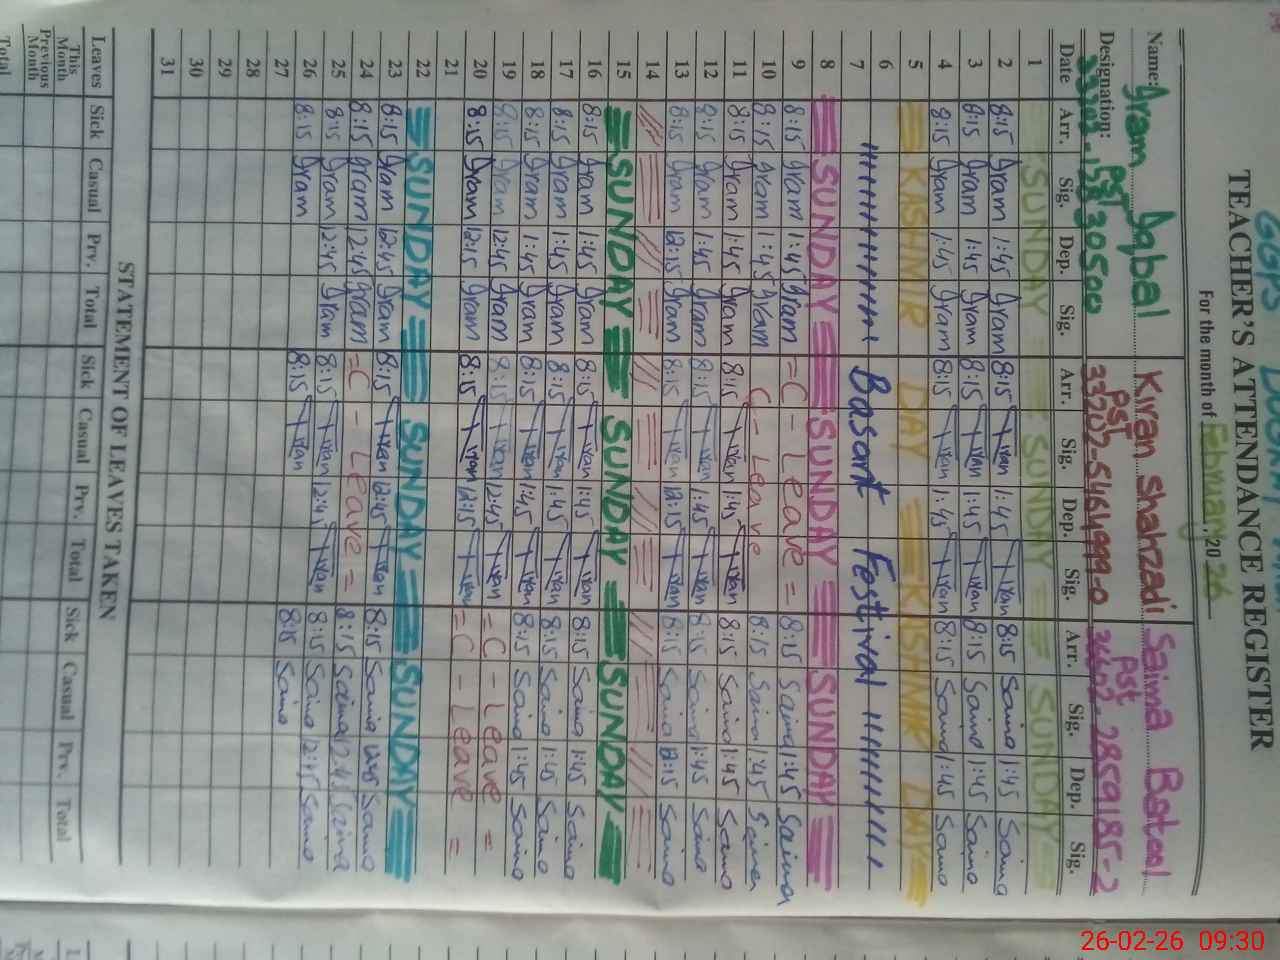 GGPS
TEACHER'S ATTENDANCE REGISTER
For the month of February 2026
Name: Iram Iqbal Kiran Shahzadi Saima Batool
Designation: PST PST PST
33202-5464999-0 36602-2859185-2
Date Arr. Sig. Dep. Sig. Arr. Sig. Dep. Sig. Arr. Sig. Dep. Sig.
1 SUNDAY SUNDAY SUNDAY
2 8:15 Iram 1:45 Iram 8:15 Kiran 1:45 Kiran 8:15 Saima 1:45 Saima
3 8:15 Iram 1:45 Iram 8:15 Kiran 1:45 Kiran 8:15 Saima 1:45 Saima
4 8:15 Iram 1:45 Iram 8:15 Kiran 1:45 Kiran 8:15 Saima 1:45 Saima
5 KASHMIR DAY KASHMIR DAY
6
7 Basant Festival
8 SUNDAY SUNDAY SUNDAY
9 8:15 Iram 1:45 Iram = C - Leave = 8:15 Saima 1:45 Saima
10 8:15 Iram 1:45 Iram C - Leave 8:15 Saima 1:45 Saima
11 8:15 Iram 1:45 Iram 8:15 Kiran 1:45 Kiran 8:15 Saima 1:45 Saima
12 8:15 Iram 1:45 Iram 8:15 Kiran 1:45 Kiran 8:15 Saima 1:45 Saima
13 8:15 Iram 12:15 Iram 8:15 Kiran 12:15 Kiran 8:15 Saima 12:15 Saima
14
15 SUNDAY SUNDAY SUNDAY
16 8:15 Iram 1:45 Iram 8:15 Kiran 1:45 Kiran 8:15 Saima 1:45 Saima
17 8:15 Iram 1:45 Iram 8:15 Kiran 1:45 Kiran 8:15 Saima 1:45 Saima
18 8:15 Iram 1:45 Iram 8:15 Kiran 1:45 Kiran 8:15 Saima 1:45 Saima
19 8:15 Iram 12:45 Iram 8:15 Kiran 12:45 Kiran = C - Leave =
20 8:15 Iram 12:15 Iram 8:15 Kiran 12:15 Kiran = C - Leave =
21
22 SUNDAY SUNDAY SUNDAY
23 8:15 Iram 12:45 Iram 8:15 Kiran 12:45 Kiran 8:15 Saima 12:45 Saima
24 8:15 Iram 12:45 Iram = C - Leave = 8:15 Saima 12:45 Saima
25 8:15 Iram 12:45 Iram 8:15 Kiran 12:45 Kiran 8:15 Saima 12:45 Saima
26 8:15 Iram 8:15 Kiran 8:15 Saima
27
28
29
30
31
STATEMENT OF LEAVES TAKEN
Leaves Sick Casual Prv. Total Sick Casual Prv. Total Sick Casual Prv. Total
This Month
Previous Month
Total
26-02-26 09:30